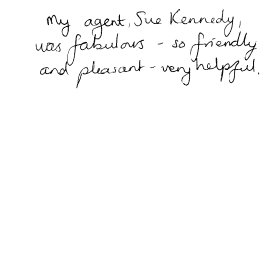 My agent, Sue Kennedy,
was fabulous - so friendly
and pleasant - very helpful.